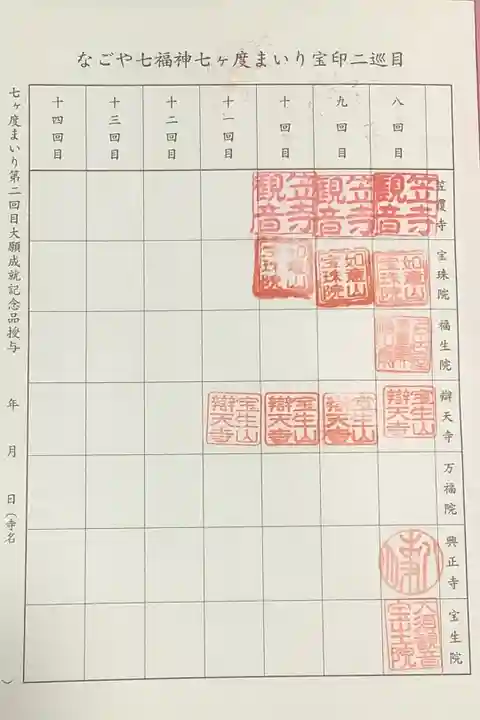 なごや七福神七ヶ度まいり宝印二巡目
八回目
九回目
十回目
十一回目
十二回目
十三回目
十四回目
笠覆寺
笠寺観音
笠寺観音
笠寺観音
宝珠院
如意山宝珠院
如意山宝珠院
如意山宝珠院
福生院
辯天寺
宝生山辯天寺
宝生山辯天寺
宝生山辯天寺
宝生山辯天寺
万福院
興正寺
宝生院
大須観音宝生院
七ヶ度まいり第二回目大願成就記念品授与　年　月　日(寺名　)